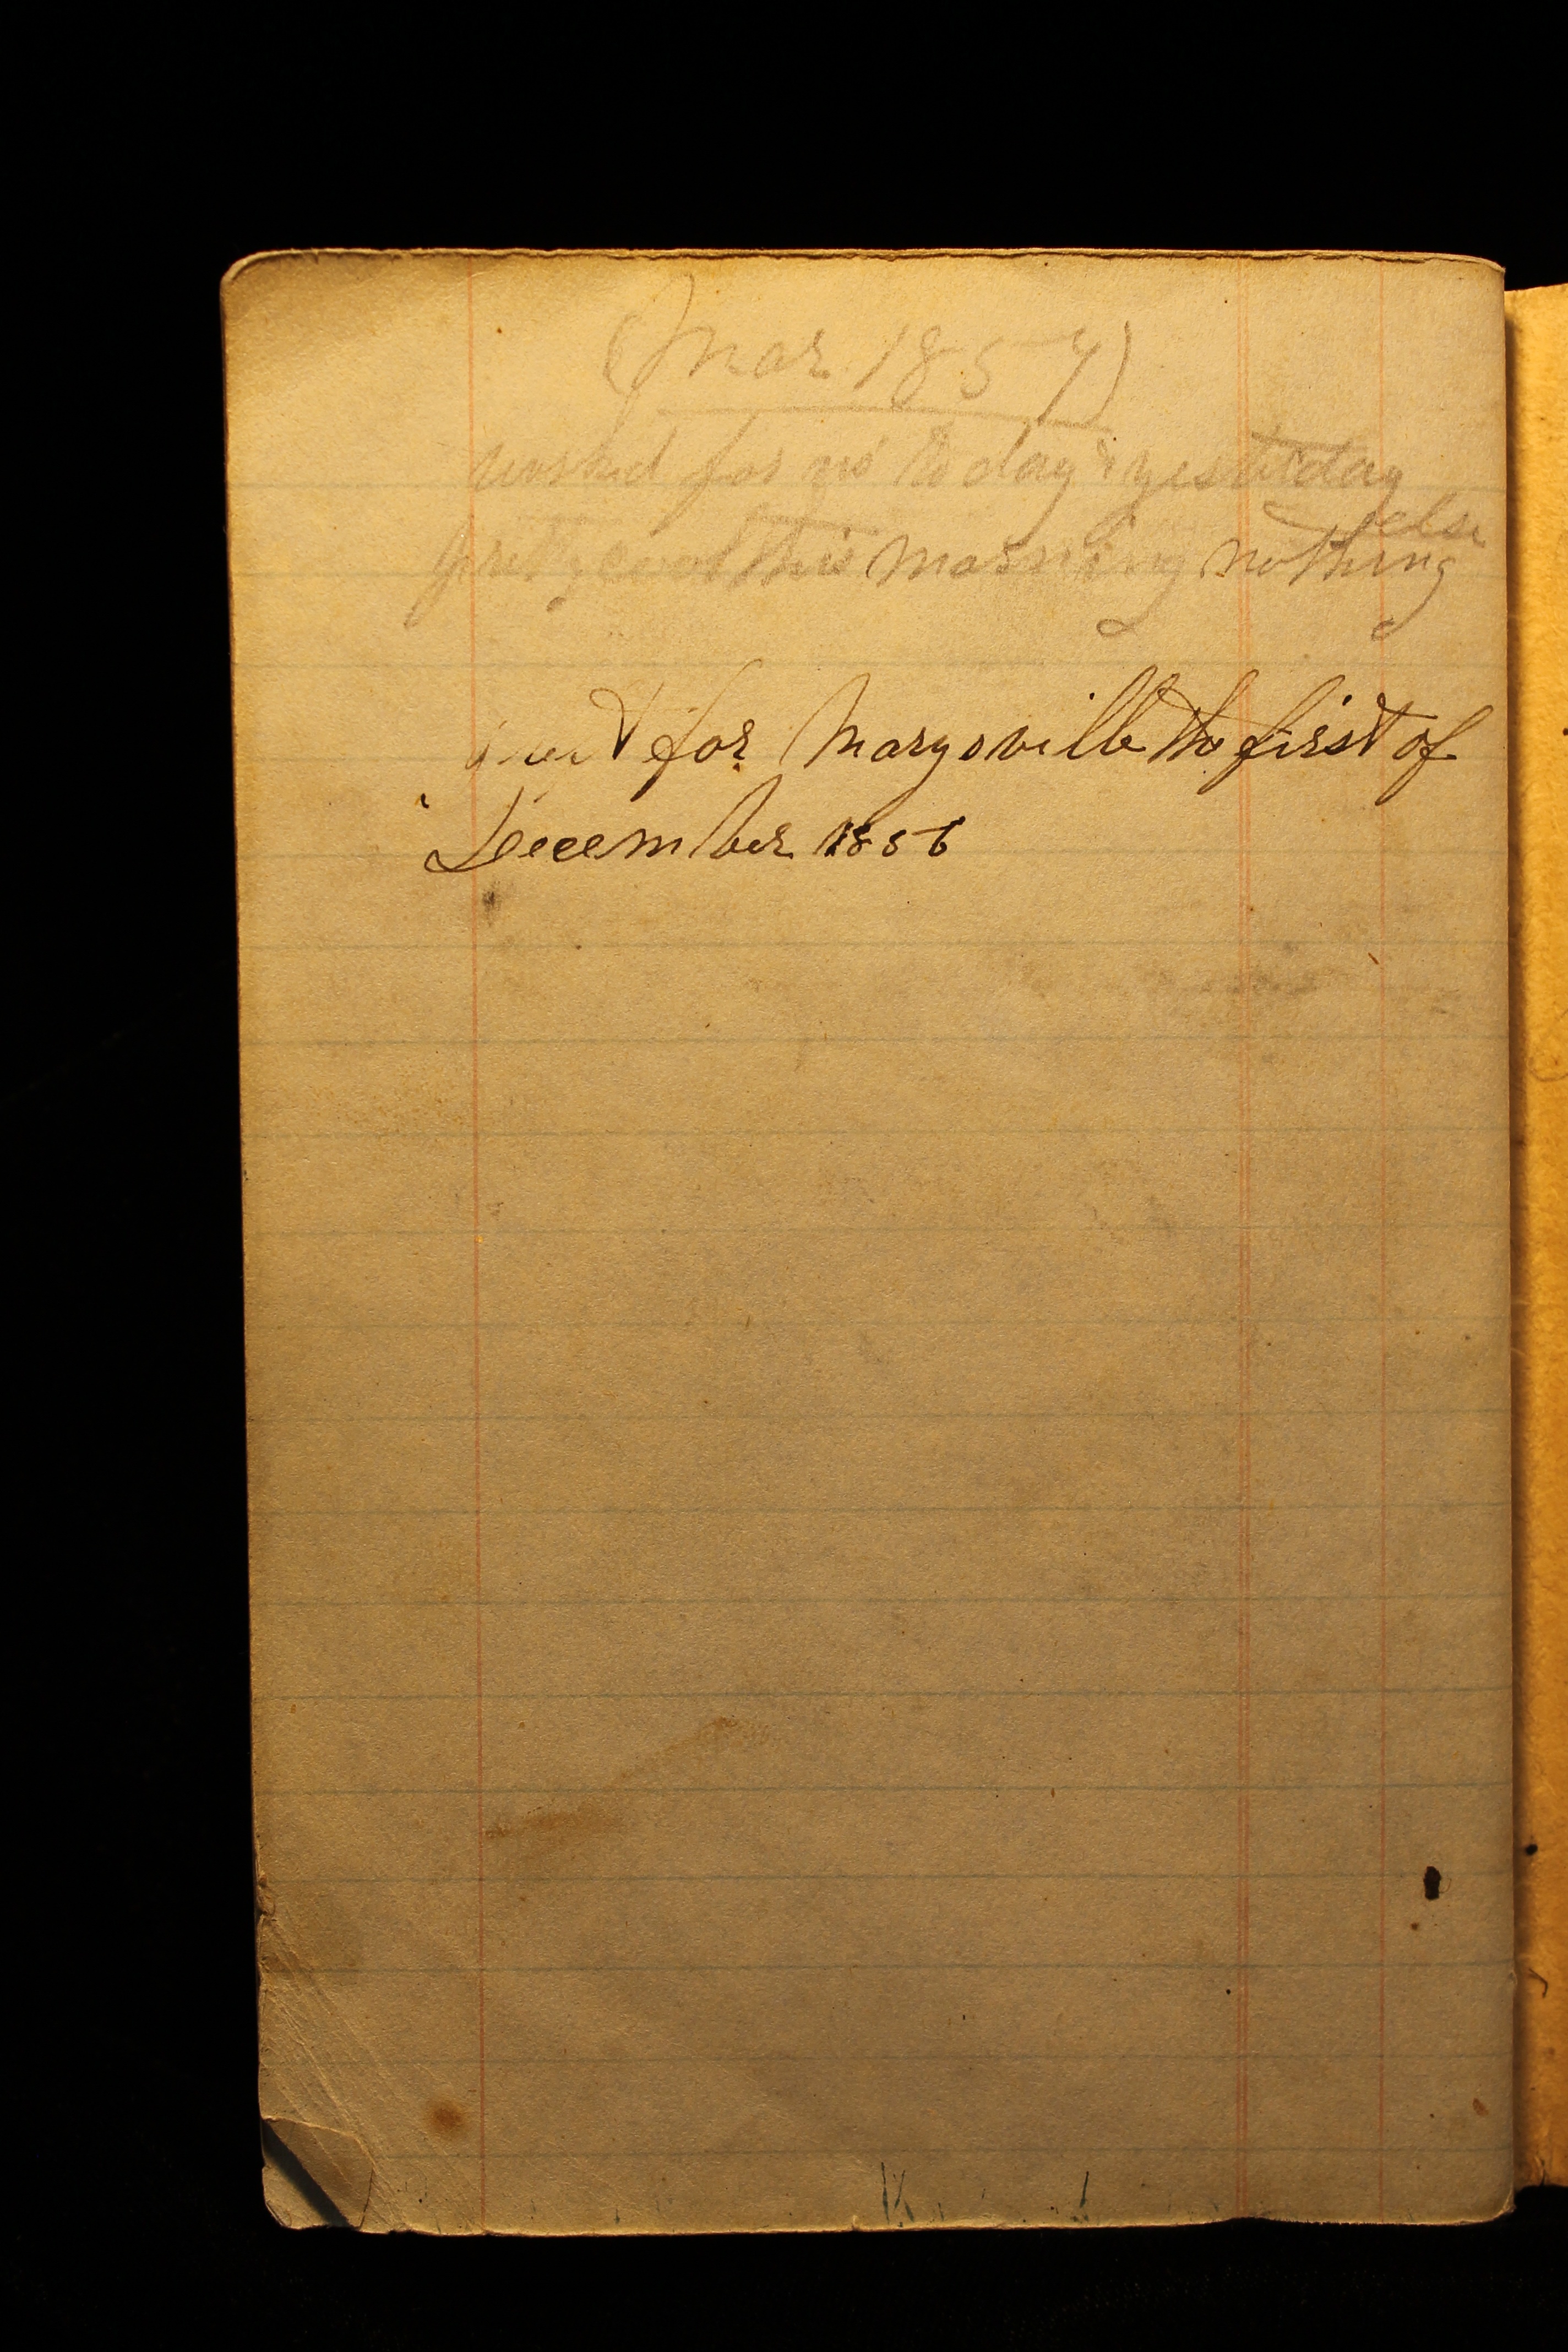 (Mar 1857)
worked for us to day & yesterday
pretty cool this morning nothing else
for Marysville the first of
December 1856